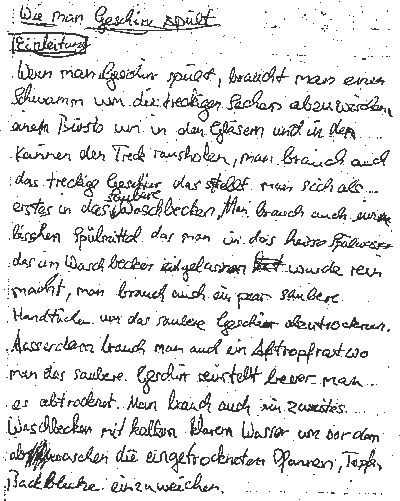 Wie man Geschirr spült
Einleitung
Wenn man Geschirr spült, braucht man einen
Schwamm um die treckigen Sachen abzuwischen,
einen Bürste um in den Gläsern und in den
Kannen den Treck rausholen, man brauch auch
das treckige Geschirr das man sich als
erstes in das saubere Waschbecken, Man brauch auch ein
bisschen Spülmittel das man in das heise Spülwasser
das im Waschbecken eingelassen wurde rein
macht, man brauch auch ein paar saubere
Handtücher um das saubere Geschirr abzutrocknen.
Ausserdem brauch man auch ein Abtropfrast wo
man das saubere Geschirr bevor man
es abtrocknet. Man brauch auch ein zweites
Waschbecken mit kalten klarem Wasser um vor dem
abwaschen die eingetrockneten Pfannen, Töpfe,
Backbleche einzuweichen.